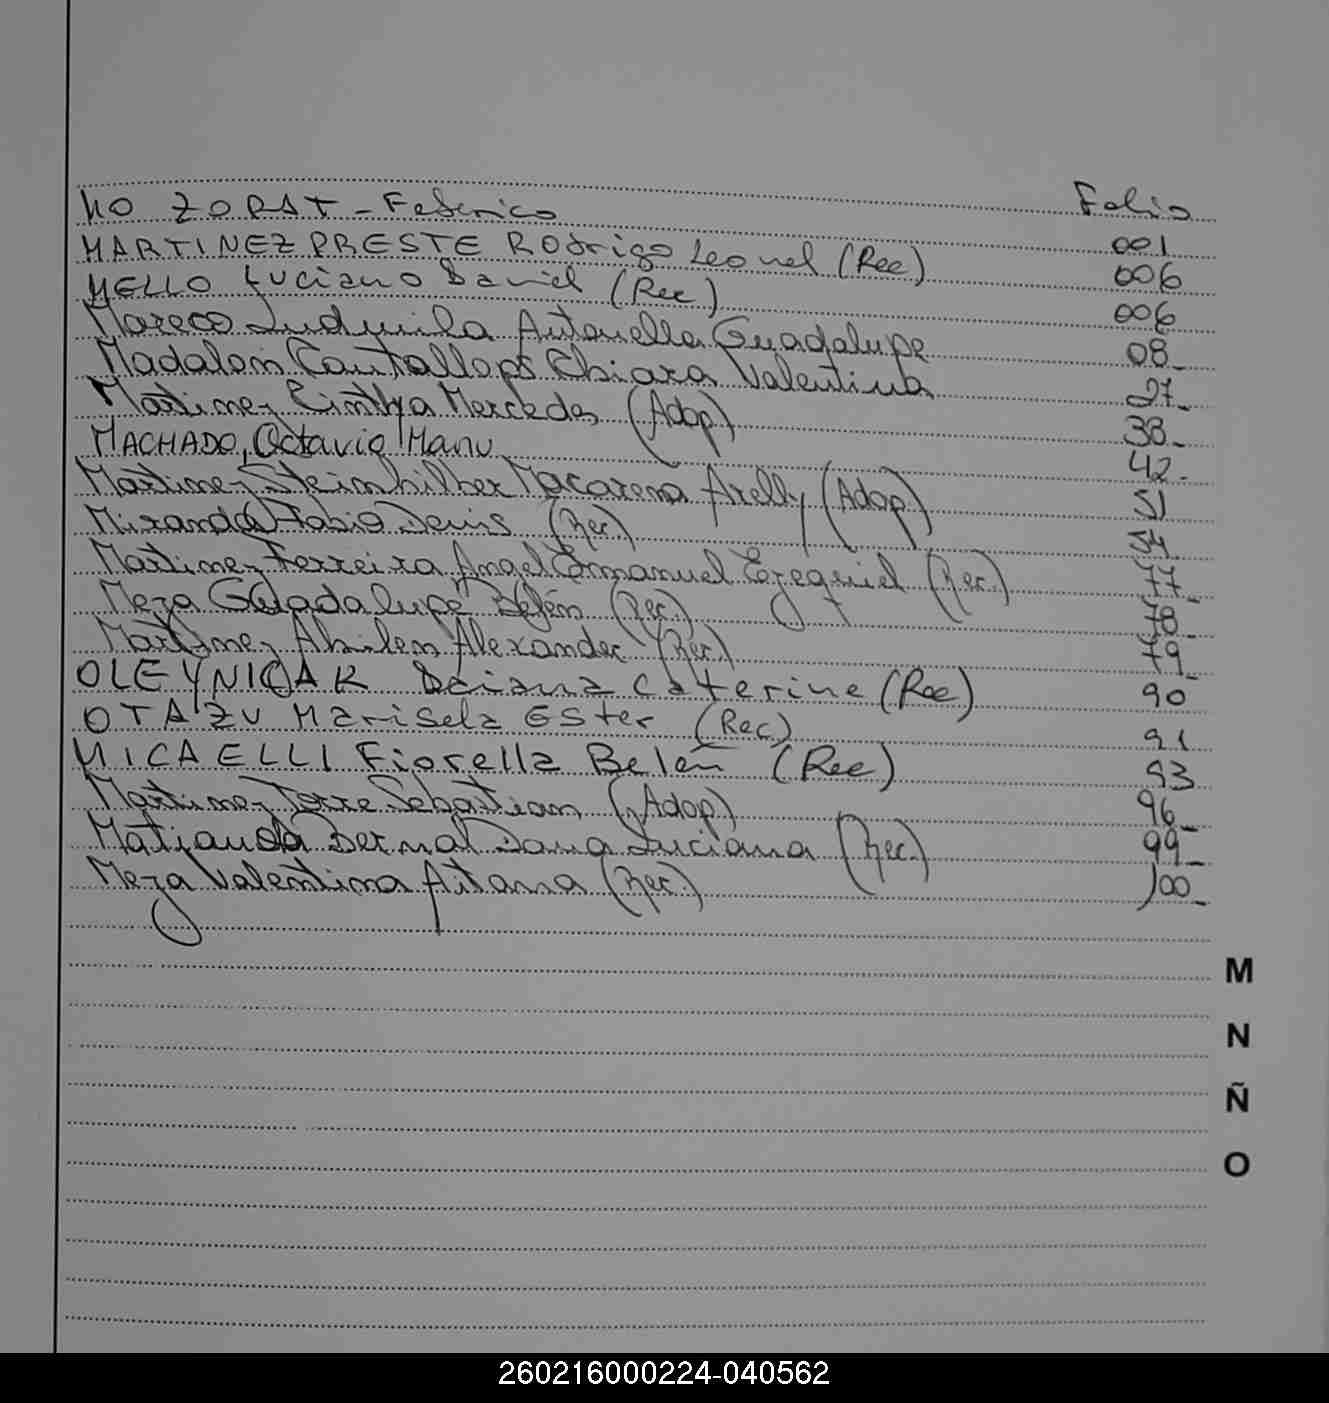 Folio
MOZORAT - Federico 001
MARTINEZ PRESTE Rodrigo Leonel (Rec) 006
MELLO Luciano Daniel (Rec) 006
Mareco Ludmila Antonella Guadalupe 08
Madalon Cantallops Chiara Valentina 27
Martinez Cinthya Mercedes (Adop) 38
MACHADO, Octavio Manu 42
Martinez Steimhilber Macarena Arelly (Adop) 51
Miranda Fabio Denis (Rec.) 54
Martinez Ferreira Angel Emmanuel Ezequiel (Rec.) 77
Meza Guadalupe Belén (Rec.) 78
Martinez Alexander (Rec.) 79
OLEYNICAK Daiana Caterine (Rec) 90
OTAZU Marisela Ester (Rec) 91
MICAELLI Fiorella Belén (Rec) 93
Martinez Torre Sebastian (Adop) 96
Matiauda Bernal Dana Luciana (Rec.) 99
Meza Valentina Aitana (Rec.) 100
M
N
Ñ
O
260216000224-040562